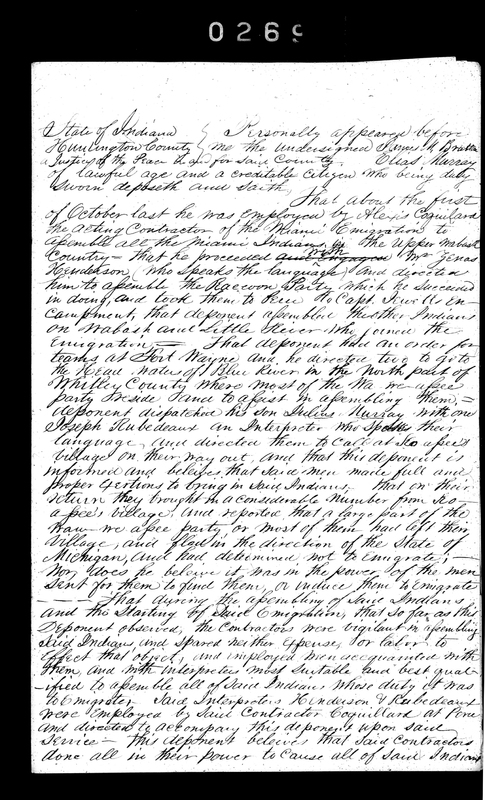 0269
State of Indiana } Personally appeared before
Huntington County } me the undersigned James M. Bratton
a Justice of the Peace in and for said County. Elias Murray
of lawful age and a creditable citizen who being duly
sworn deposeth and saith,
That about the first
of October last he was employed by Alexis Coquillard
the acting Contractor of the Miami Emigration to
assemble all the Miami Indians in the Upper Wabash
Country — that he proceeded with Mr Zenas
Henderson (who speaks the language) and directed
him to assemble the Racoon Party which he succeeded
in doing, and took them to Peru to Capt. Jewetts en-
campment, that deponent assembled the other Indians
on Wabash and Little River who joined the
Emigration — That deponent had an order for
teams at Fort Wayne and he directed two to go to
the Head waters of Blue River in the North part of
Whitley County where most of the Wa we a pee
party reside, and to assist in assembling them, =
deponent dispatched his son Julius Murray with one
Joseph Rubedeaux an Interpreter who speaks their
language, and directed them to call at Seo a pee's
village on their way out, and that this deponent is
informed and beleives that said men made full and
proper exertions to bring in said Indians, — that on their
return they brought in a considerable number from Seo-
a pee's village, and reported that a large part of the
Waw we a pee party, or most of them had left their
Village, and fled in the direction of the State of
Michigan, and had determined not to Emigrate; —
Nor does he beleive it was in the power of the men
sent for them to find them, or induce them to Emigrate
— That during the assembling of said Indians
and the starting of said Emigration, that so far as this
Deponent observed, the Contractors were vigilant in assembling
said Indians, and spared neither expense, nor labor to
effect that object, and employed men acquainted with
them, and with interpreters most suitable and best qual
-ified to assemble all of said Indians whose duty it was
to Emigrate. Said Interpreters Henderson & Rubedeaux
were employed by said Contractor Coquillard at Peru
and directed to accompany this deponent upon said
service — this deponent beleives that said Contractors
done all in their power to cause all of said Indians